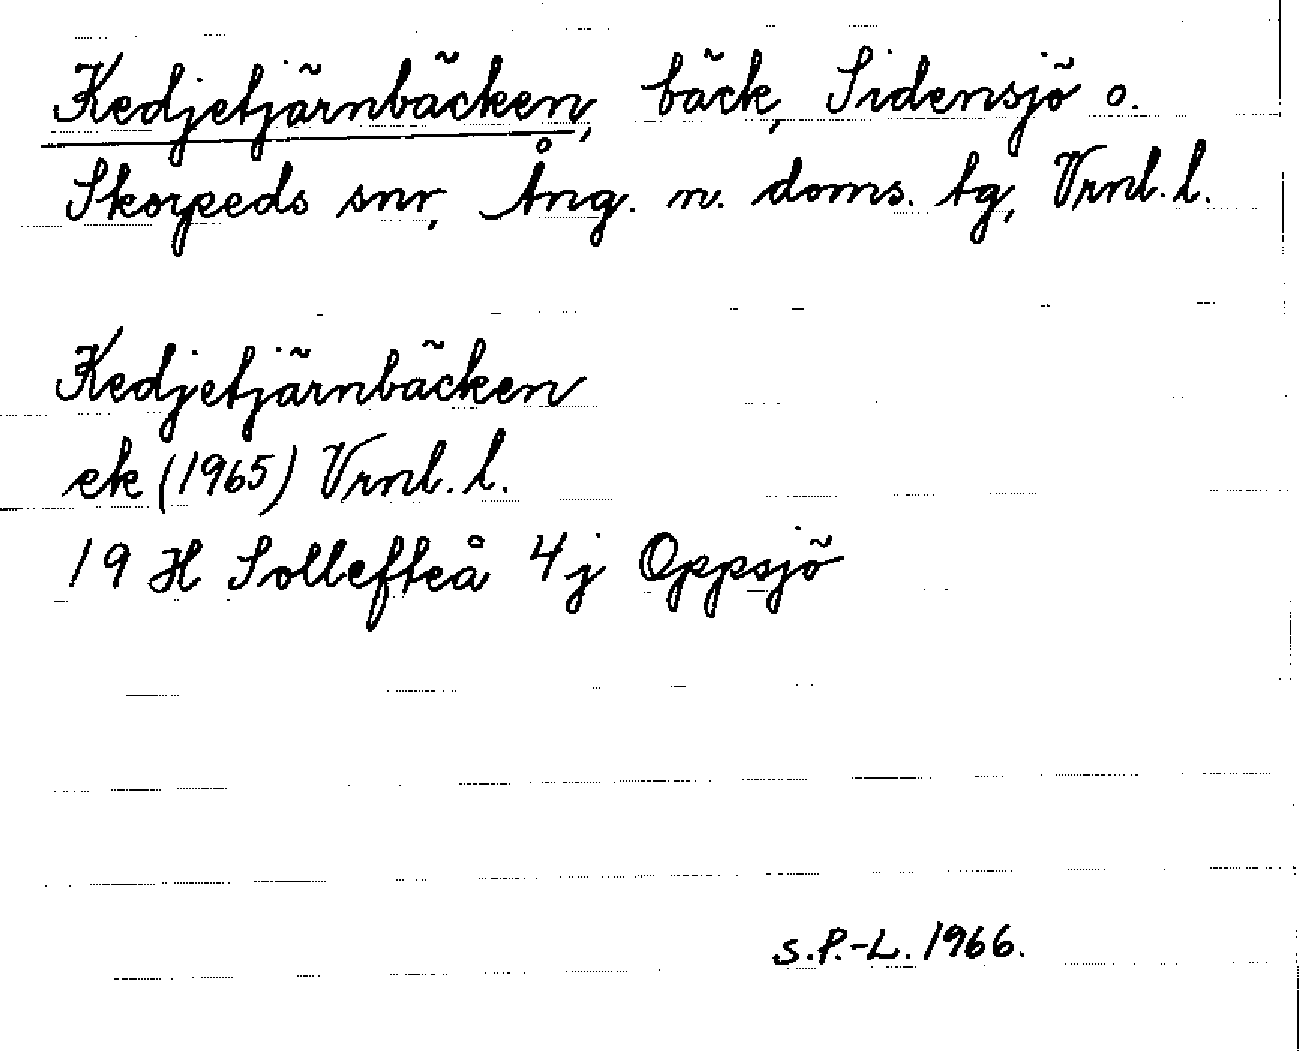 Kedjetjärnbäcken, bäck, Sidensjö o.
Skorpeds snr, Ång. n. doms. tg, Vrnl. l.
Kedjetjärnbäcken
ek (1965) Vrnl. l.
19 H Sollefteå 4j Oppsjö
S.P.-L. 1966.